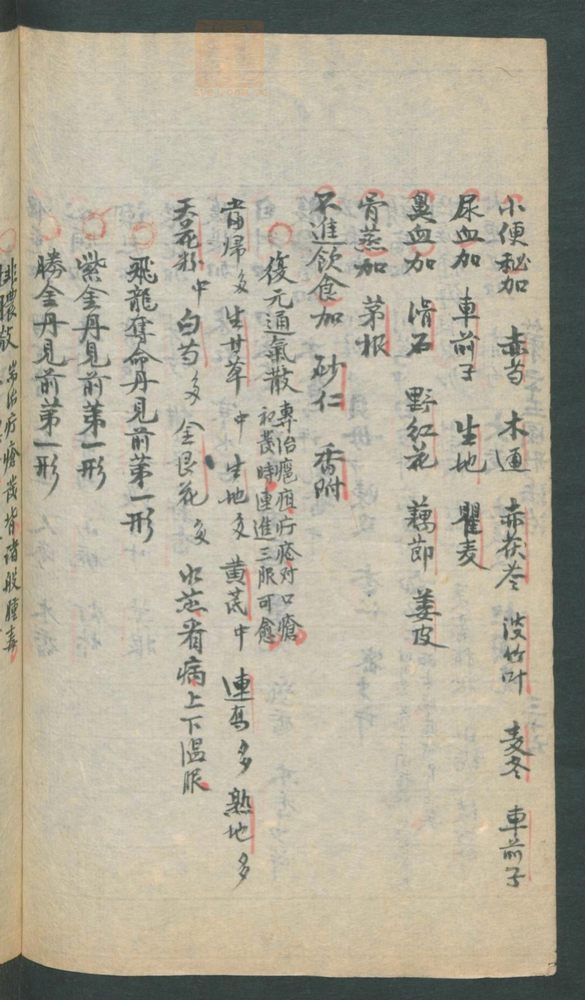 小便秘加　赤芍　木通　赤茯苓　淡竹叶　麦冬　車前子
尿血加　車前子　生地　瞿麦
鼻血加　滑石　野紅花　藕節　姜皮
骨蒸加　茅根
不進飲食加　砂仁　香附
復元通氣散　專治癰疽疔瘡对口瘡
初發時連進三服可愈
當歸多　生甘草中　生地多　黄芪中　連喬多　熟地多
天花粉中　白芍多　金艮花多　水煎看病上下温服
飛龍奪命丹見前第一形
紫金丹見前第一形
勝金丹見前第一形
排膿散　專治疔瘡發背諸般腫毒